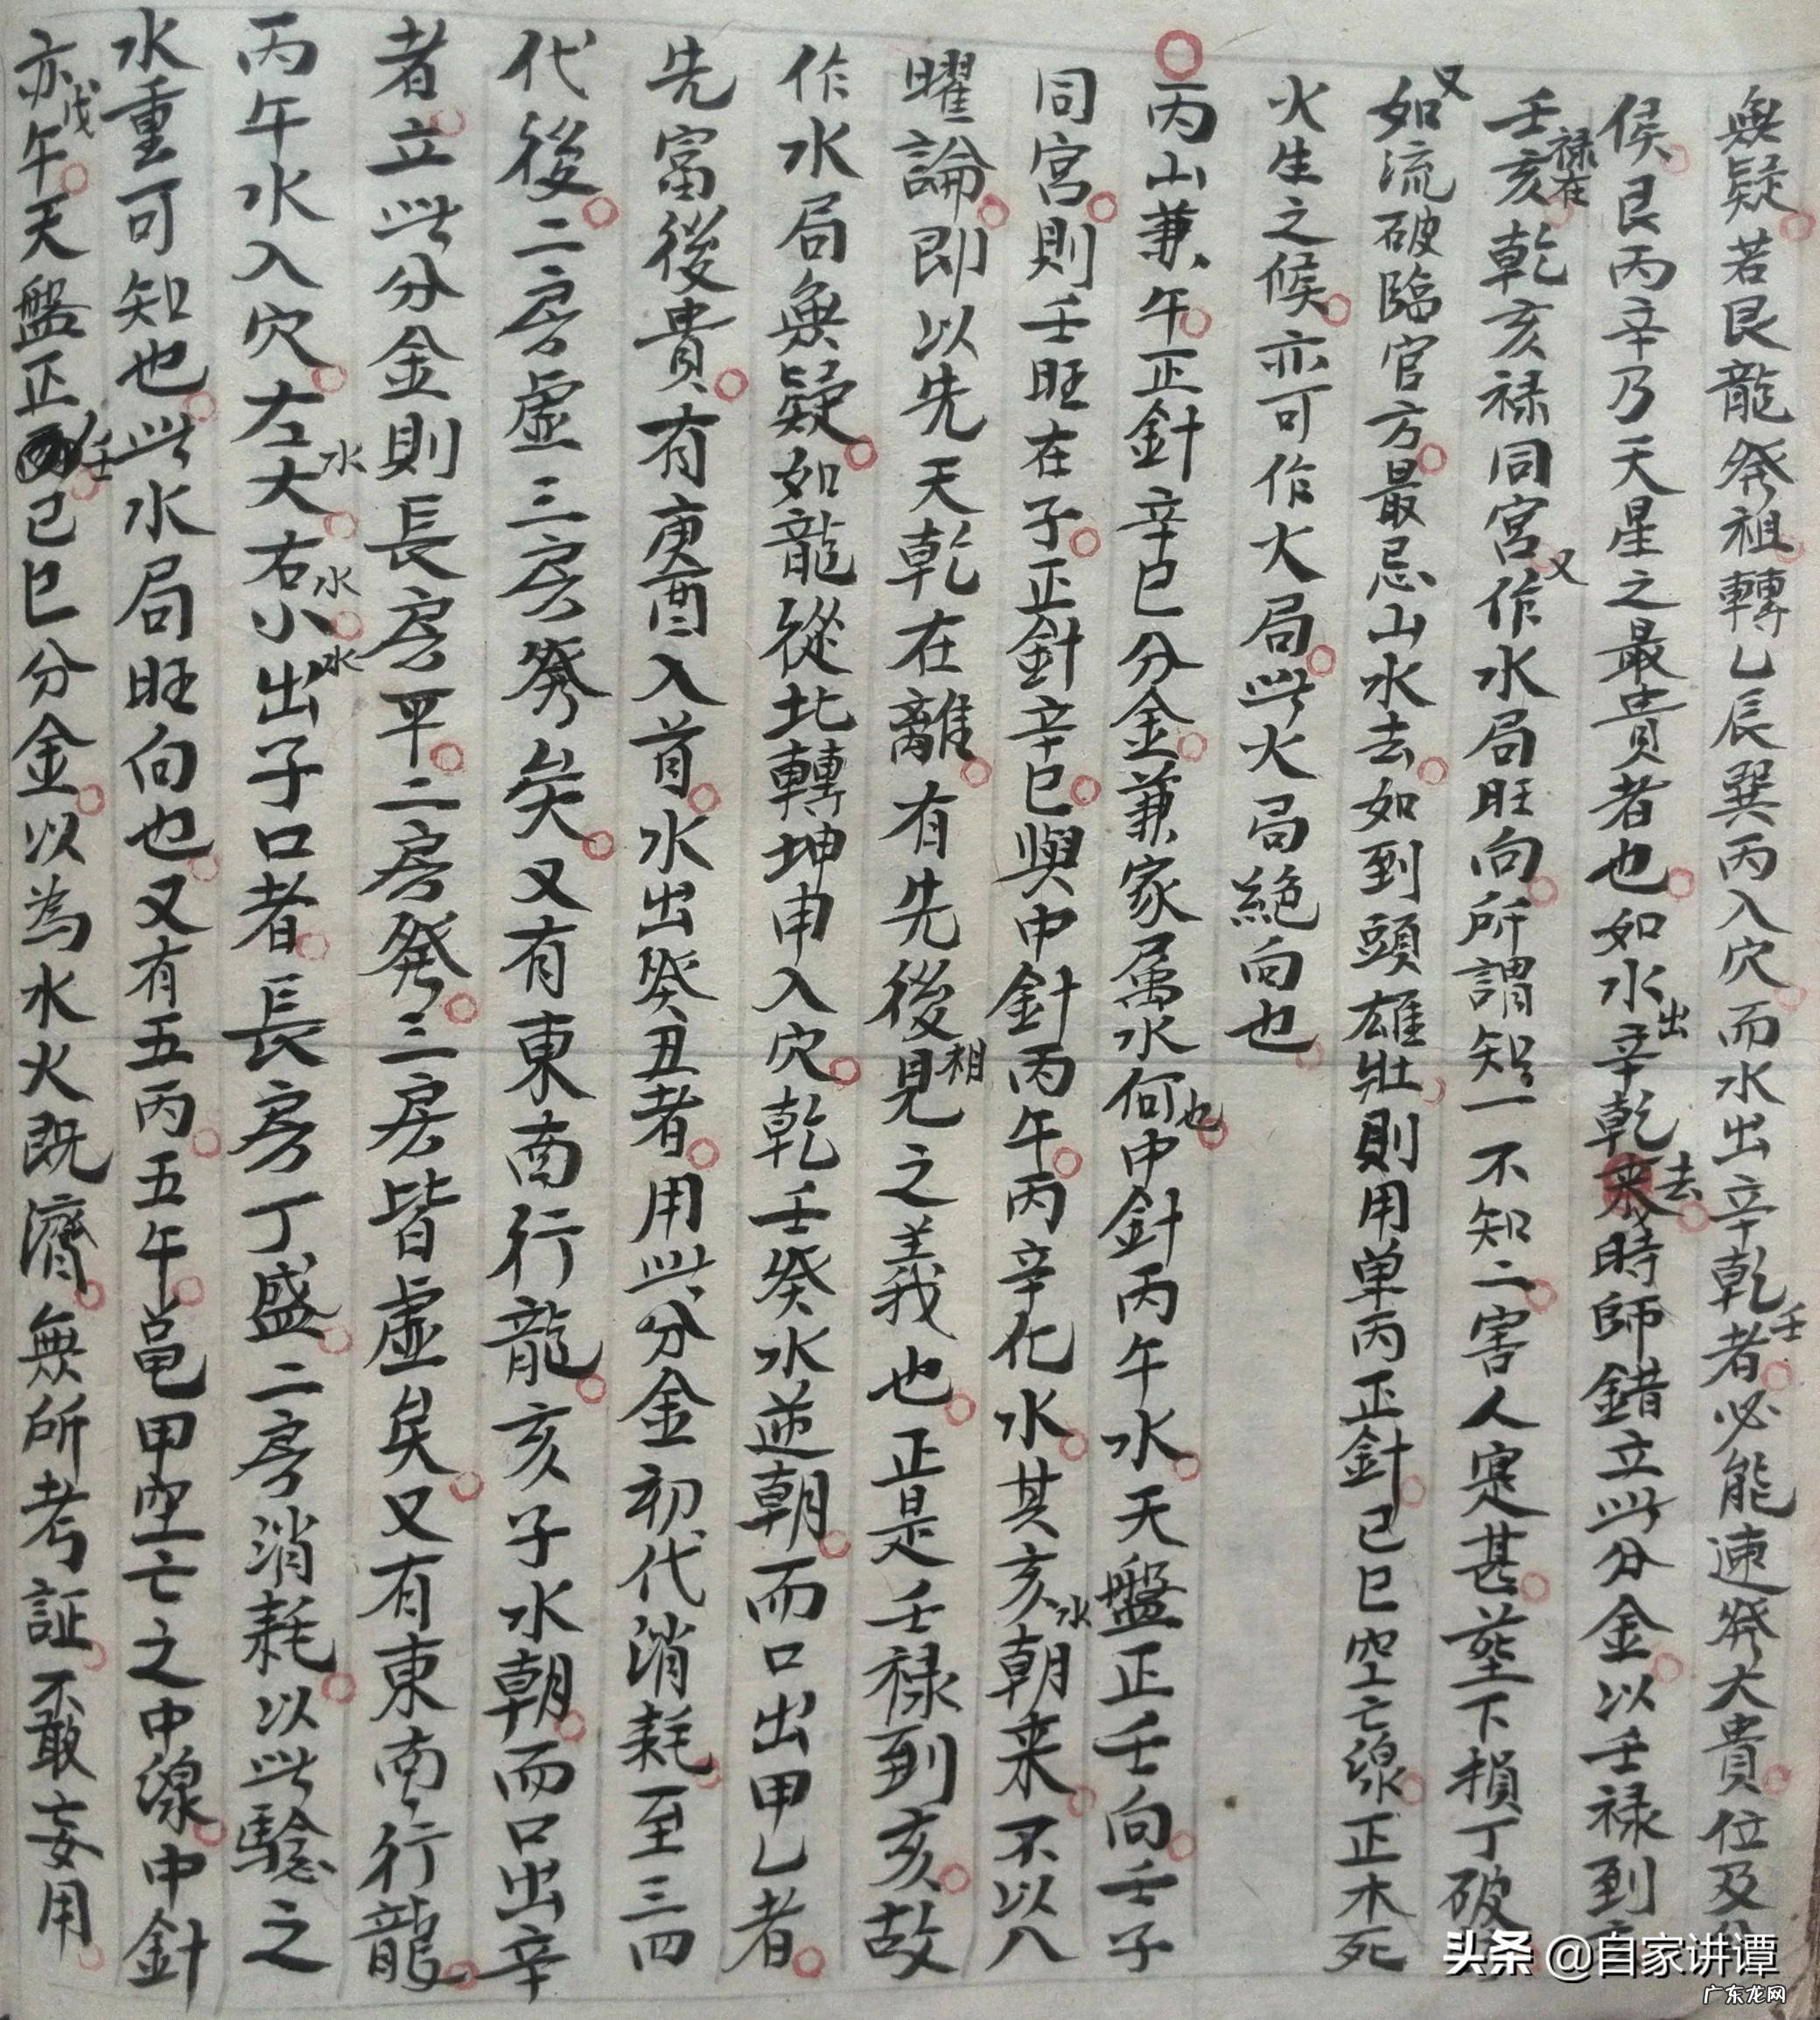 無疑若艮龍發祖轉乙辰巽丙入穴而水出辛乾壬者必能速發大貴位及公
侯艮丙辛乃天星之最貴者也如水出辛乾去時師錯立此分金以壬禄到
壬禄在亥乾亥禄同宮又作水局旺向所謂知一不知二害人寔甚塟下損丁破
又如流破臨官方最忌山水去如到頭雄壯則用单丙正針己巳空亡線正木死
火生之候亦可作火局此火局絕向也
丙山兼午正針辛巳分金兼家属水何也中針丙午水天盤正壬向壬子
同宮則壬旺在子正針辛巳與中針丙午丙辛化水其亥水朝来不以八
曜論即以先天乾在離有先後相見之義也正是壬禄到亥故
作水局無疑如龍從北轉坤申入穴乾壬癸水逆朝而口出甲乙者
先富後貴有庚酉入首水出癸丑者用此分金初代消耗至三四
代後二房虛三房發矣又有東南行龍亥子水朝而口出辛
者立此分金則長房平二房發三房皆虛矣又有東南行龍
丙午水入穴左水大右水小水出子口者長房丁盛二房消耗以此騐之
水重可知也此水局旺向也又有五丙五午黾甲空亡之中線中針
亦戊午天盤正壬己巳分金以為水火既濟無所考証不敢妄用
头条 @自家讲谭
广东龙网